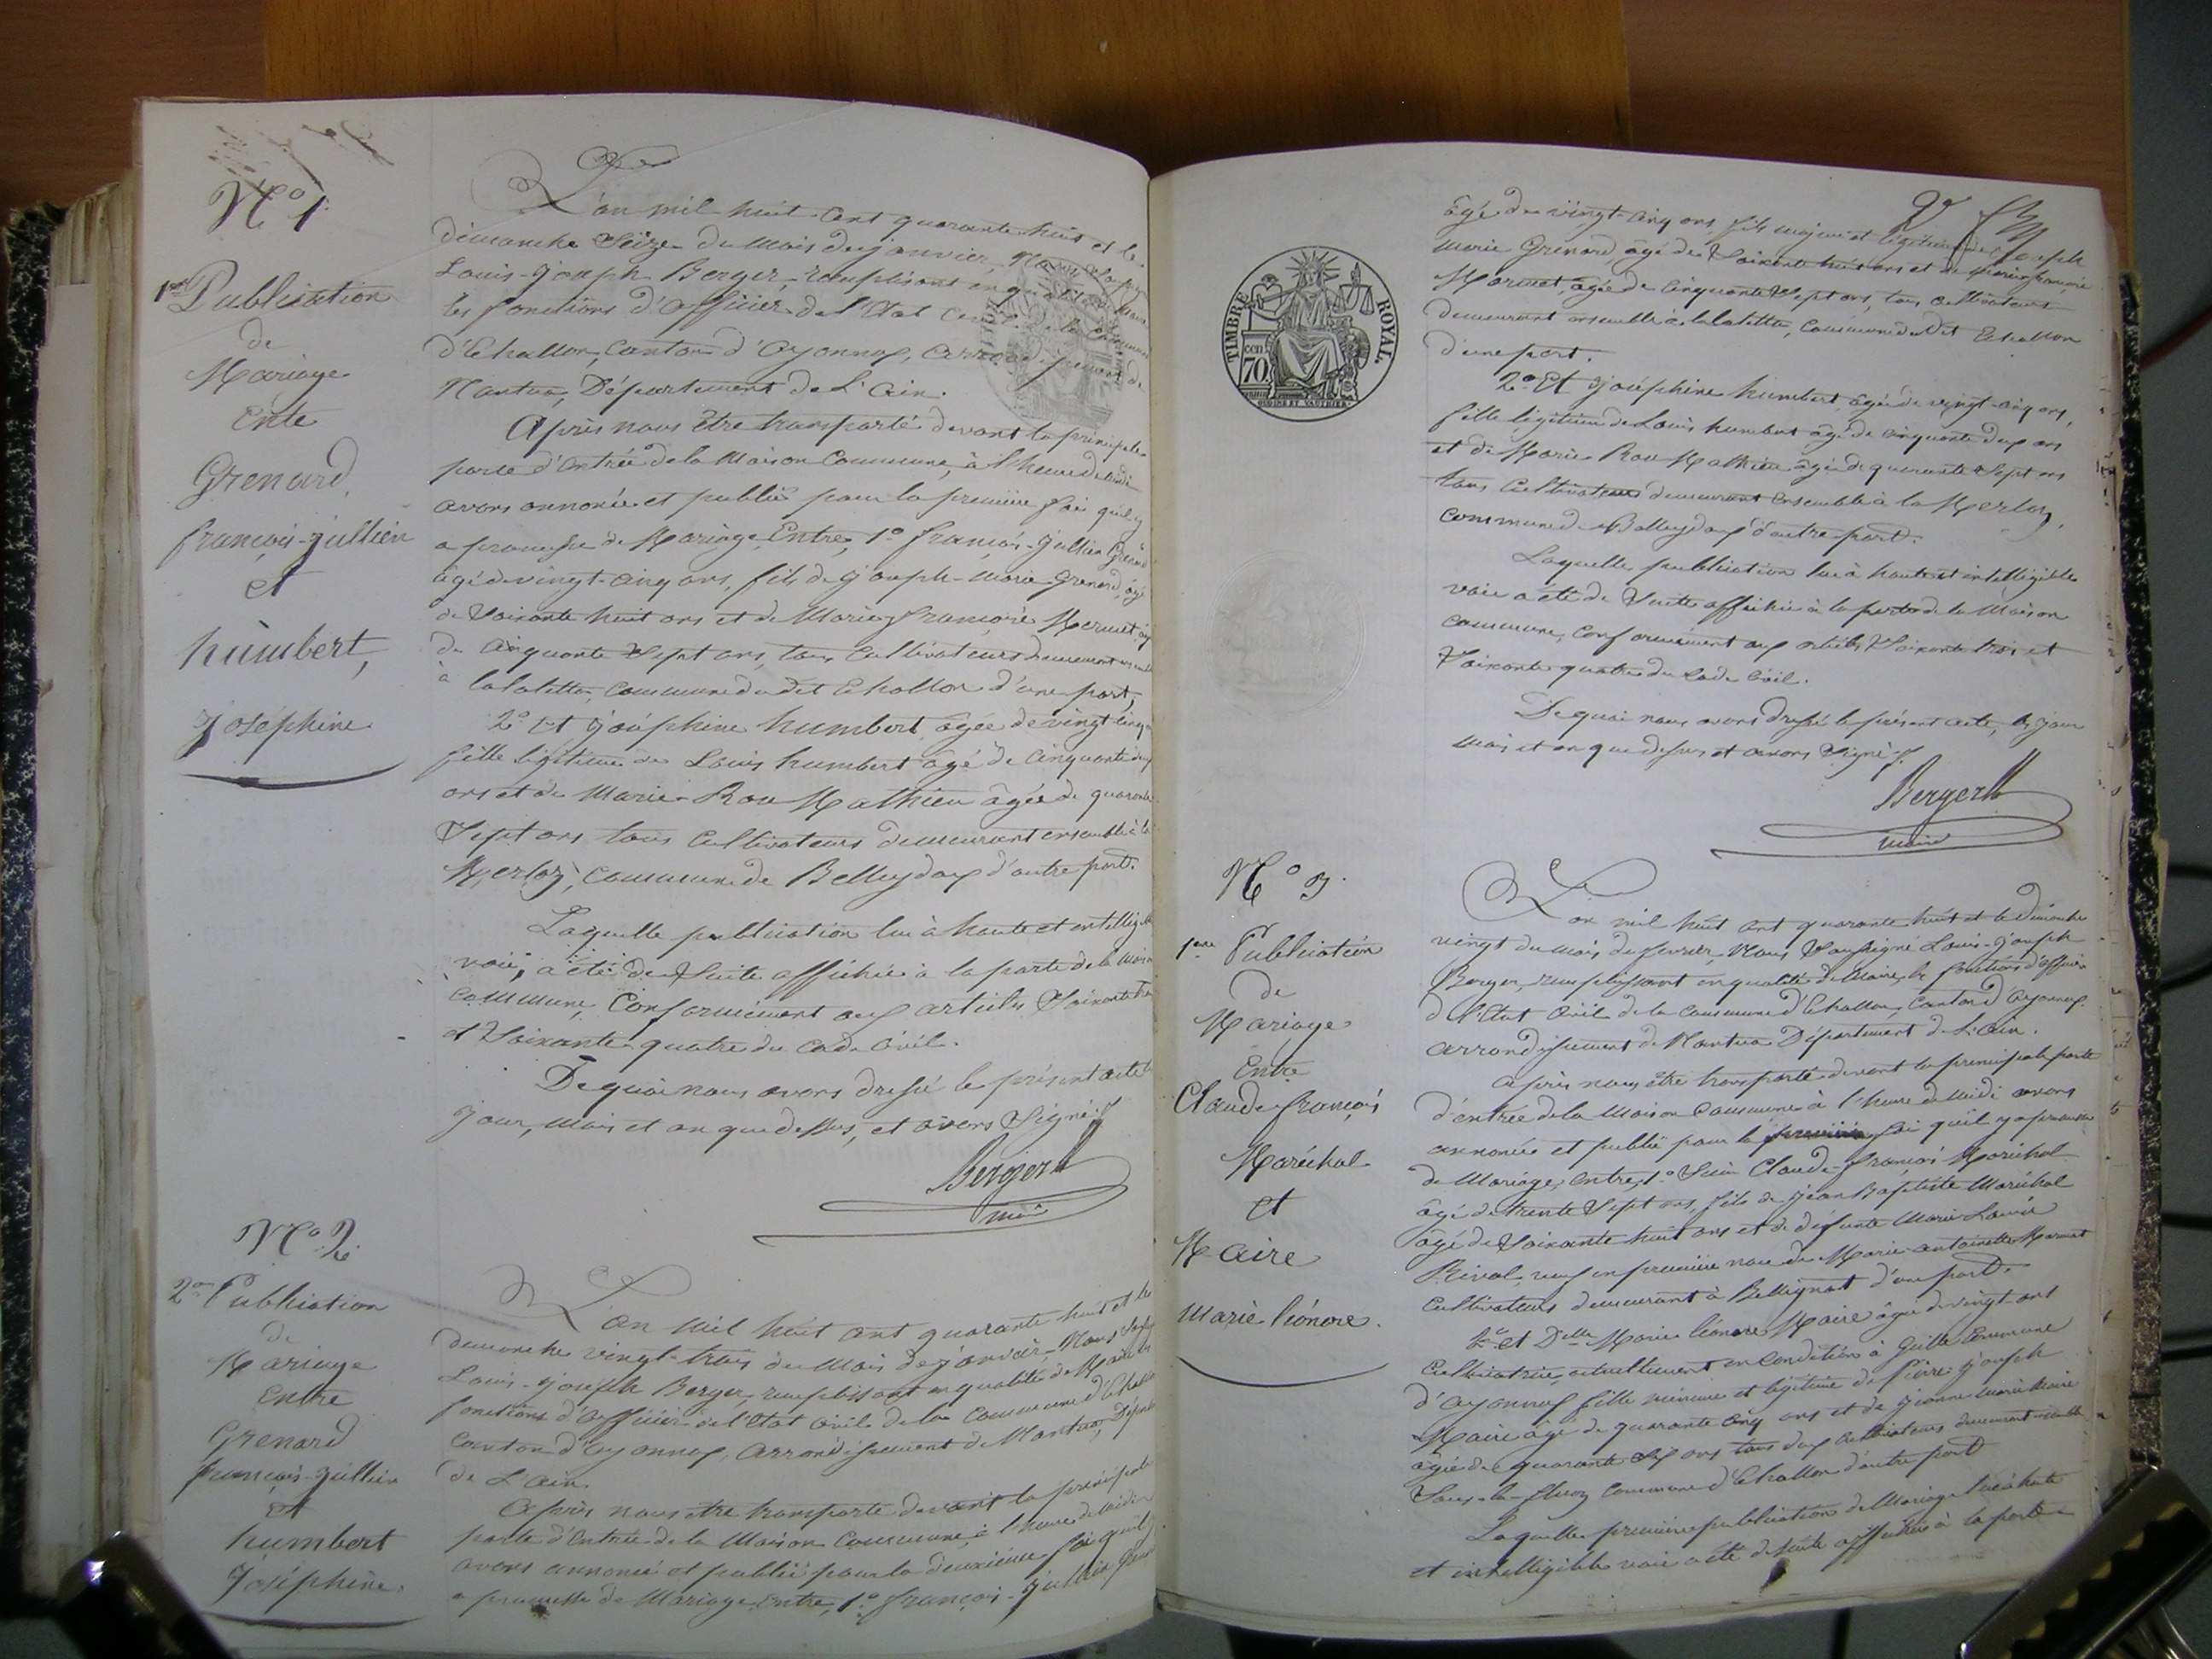 N° 1.
1ère Publication
de
Mariage
Entre
Grenard,
françois-jullien
et
humbert,
Joséphine
L'an mil huit-cent quarante huit et le
dimanche Seize du Mois de janvier, Nous
Louis-Joseph Berger, remplissant en qualité
les fonctions d'officier de l'Etat Civil de la Commune
d'Echallon, Canton d'Oyonnax, arrondissement de
Nantua, Département de L'Ain.
Après nous être transporté devant la principale
porte d'entrée de la Maison Commune, à l'heure de midi
avons annoncé et publié pour la première fois qu'il y
a promesse de Mariage Entre, 1° françois-Jullien Grenard
âgé de vingt-cinq ans, fils de Joseph-Marie Grenard, âgé
de Soixante huit ans et de Marie françoise Mermet, âgée
de cinquante Sept ans, tous Cultivateurs demeurant ensemble
à lalatette, commune du dit Echallon d'une part,
2° Et Joséphine humbert, âgée de vingt-cinq
fille légitime de Louis humbert âgé de cinquante deux
ans et de Marie Rou Mathieu âgée de quarante
Sept ans tous Cultivateurs demeurant ensemble à la
Merloz, commune de Belleydoux d'autre part.
Laquelle publication lue à haute et intelligible
voie, a été de Suite affichée à la porte de la Maison
Commune, Conformément aux articles Soixante trois
et Soixante quatre du Code Civil.
De quoi nous avons dressé le présent acte
jour, mois et an que dessus, et avons Signé.
Berger
maire
N° 2.
2me Publication
de
Mariage
Entre
Grenard
françois-jullien
et
humbert
Joséphine.
L'an mil huit cent quarante huit et le
dimanche vingt-trois du Mois de janvier, Nous
Louis-Joseph Berger, remplissant en qualité de Maire les
fonctions d'officier de l'Etat Civil de la Commune d'Echallon
Canton d'Oyonnax, arrondissement de Nantua, Départ
de L'Ain.
Après nous être transporté devant la principale
porte d'entrée de la Maison Commune, à l'heure de midi
avons annoncé et publié pour la deuxième fois qu'il y
a promesse de Mariage Entre, 1° françois-Jullien
âgé de vingt-cinq ans, fils majeur et légitime de Joseph
Marie Grenard, âgé de Soixante huit ans et de Marie françoise
Mermet, âgée de cinquante Sept ans, tous cultivateurs
demeurant ensemble à lalatette, commune du dit Echallon
d'une part.
2° Et Joséphine humbert, âgée de vingt-cinq ans,
fille légitime de Louis humbert âgé de cinquante deux ans
et de Marie Rou Mathieu âgée de quarante Sept ans
tous Cultivateurs demeurant ensemble à la Merloz,
commune de Belleydoux d'autre part.
Laquelle publication lue à haute et intelligible
voie a été de Suite affichée à la porte de la Maison
commune, conformément aux articles Soixante trois et
Soixante quatre du Code Civil.
De quoi nous avons dressé le présent acte, les jour
mois et an que dessus et avons Signé.
Berger
maire
TIMBRE ROYAL.
cen 70
N° 3.
1ère Publication
de
Mariage
Entre
Claude françois
Maréchal
et
Maire
Marie léonore.
L'an mil huit cent quarante huit et le Dimanche
vingt du mois de fevrier, Nous Soussigné Louis-Joseph
Berger, remplissant en qualité de Maire, les fonctions d'officier
de l'Etat Civil de la commune d'Echallon, Canton d'Oyonnax.
arrondissement de Nantua Département de L'Ain.
Après nous être transporté devant la principale porte
d'entrée de la Maison Commune à l'heure de midi avons
annoncé et publié pour la première fois qu'il y a promesse
de Mariage, Entre, 1° Claude-françois Maréchal
âgé de trente Sept ans, fils de Jean Baptiste Maréchal
âgé de Soixante huit ans et de défunte Marie Louise
Rival, veuf en première noce de Marie antoinette Mermet
Cultivateurs demeurant à Bellignat d'une part.
2° et Delle Marie léonore Maire âgée de vingt ans
Cultivatrice, actuellement en Condition à Geille Commune
d'Oyonnax fille mineure et légitime de pierre Joseph
Maire âgé de quarante cinq ans et de jeanne marie Maire
âgée de quarante six ans tous deux cultivateurs demeurant ensemble
commune d'Echallon d'autre part
Laquelle première publication de Mariage lue à haute
et intelligible voie a été de suite affichée à la porte